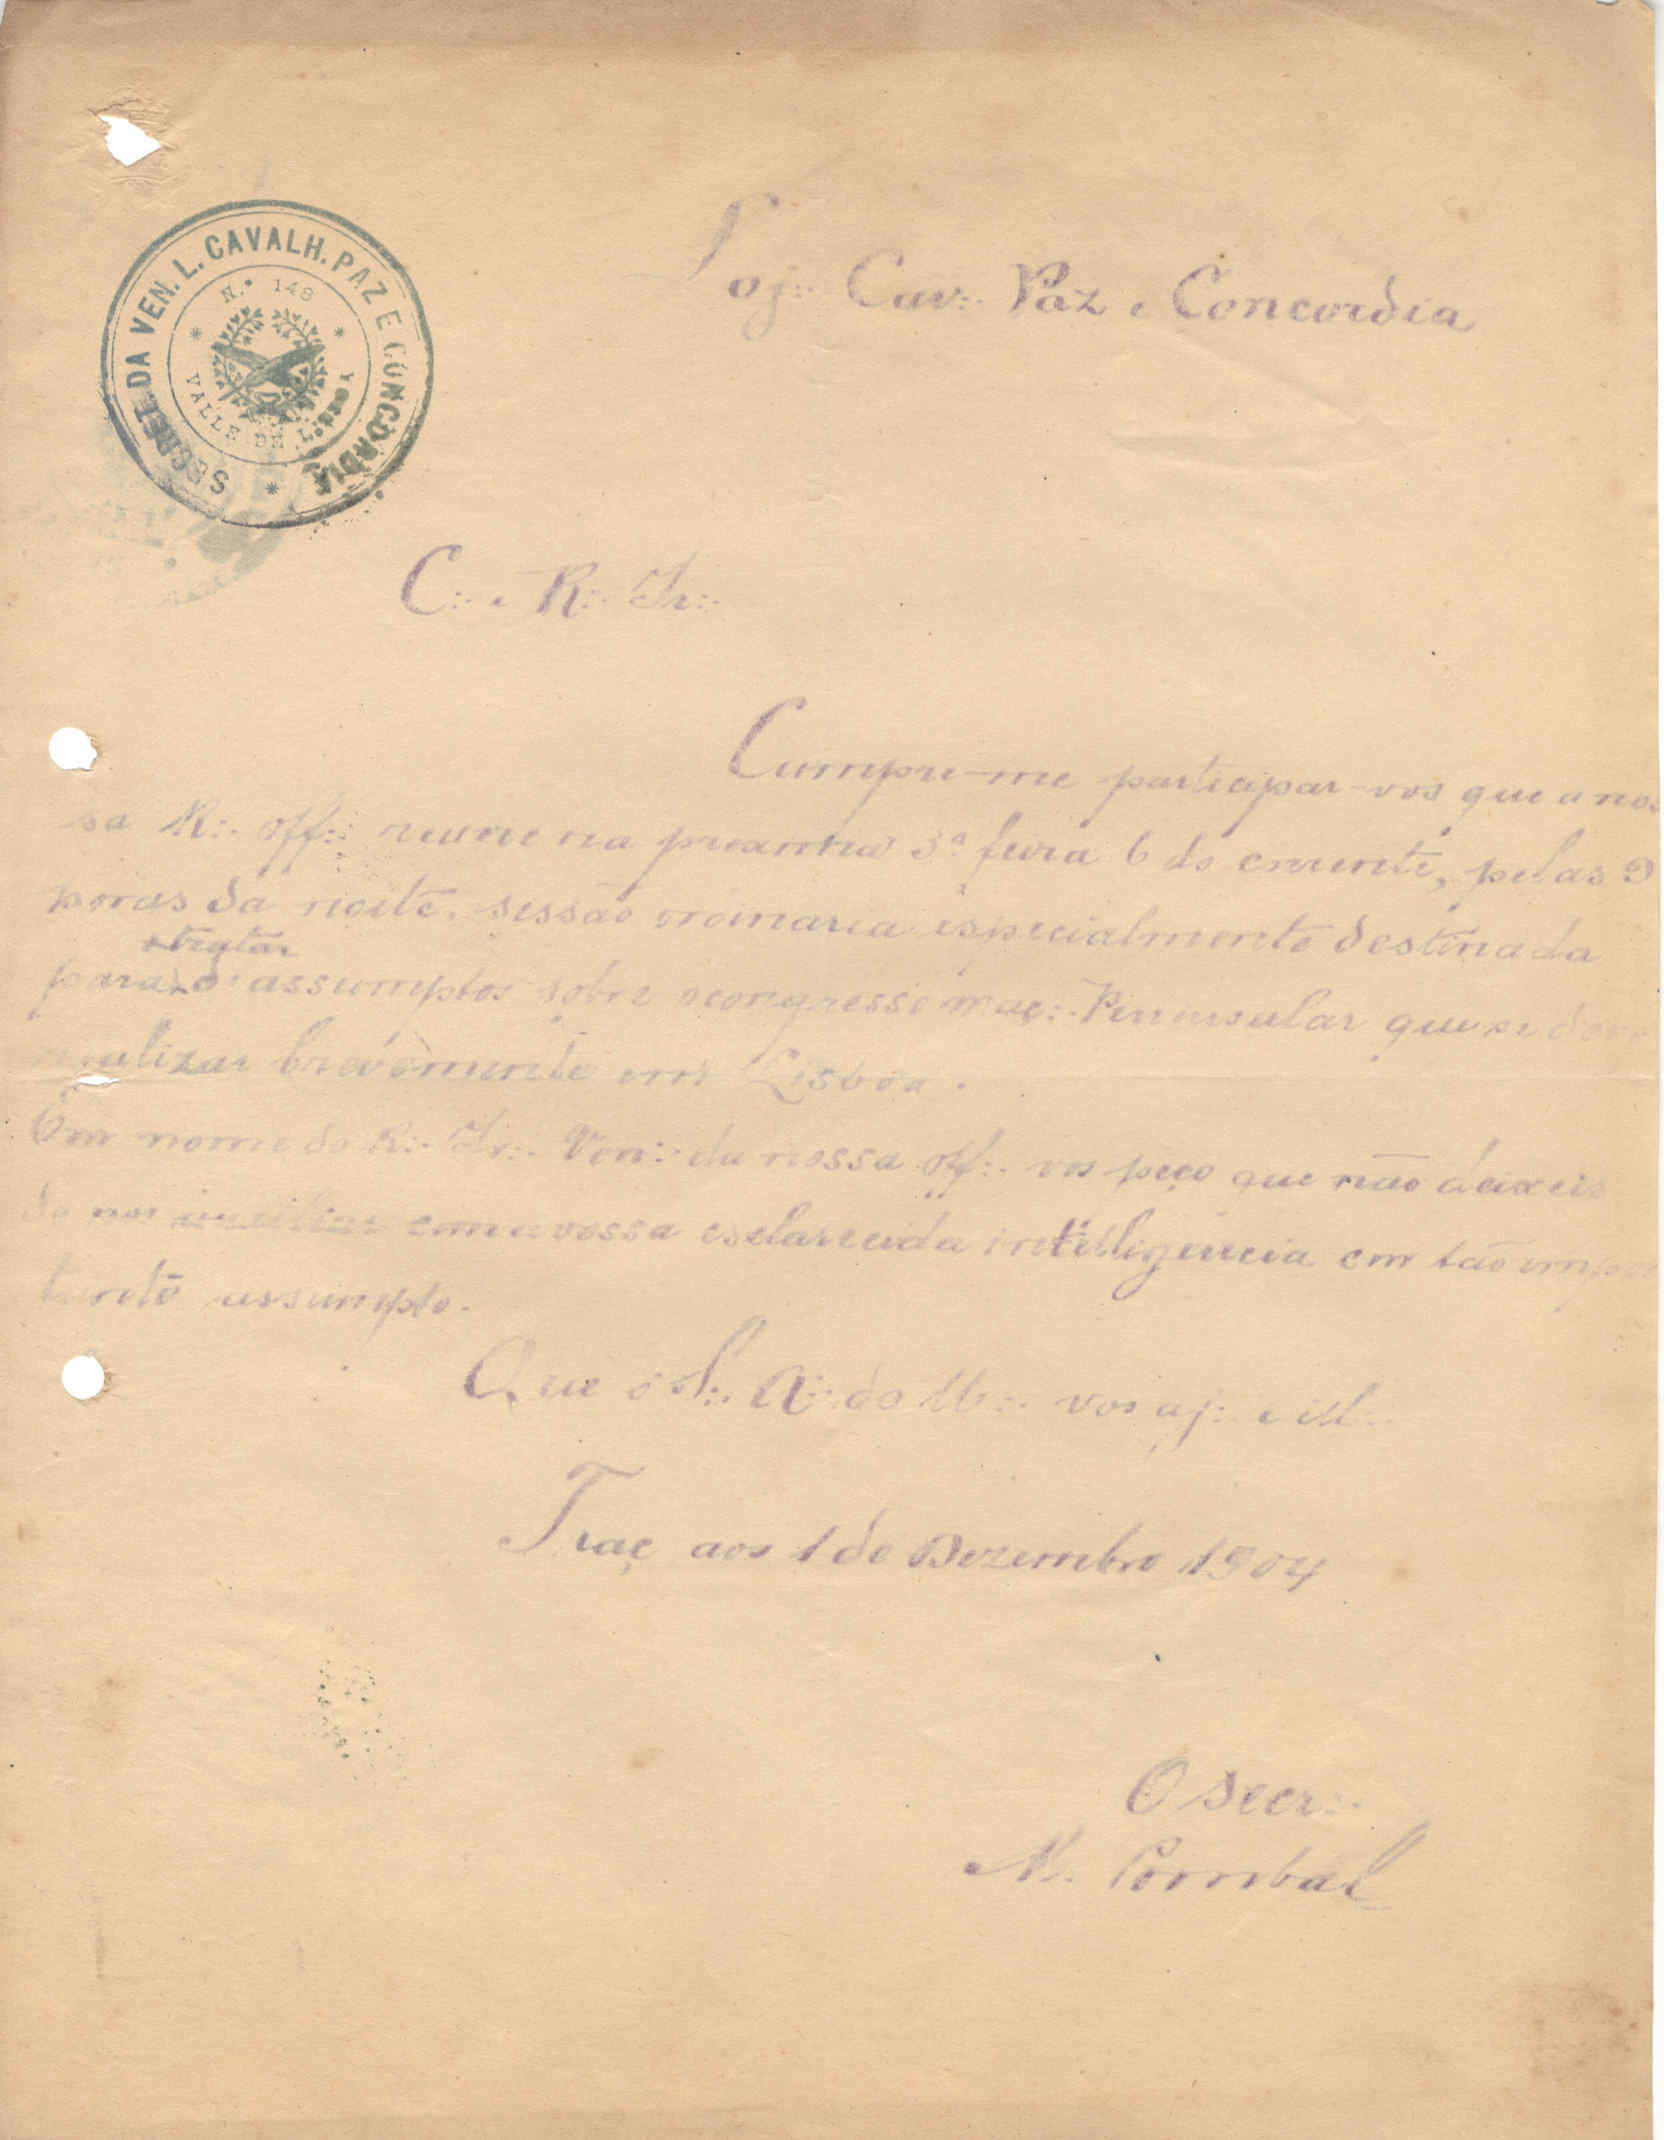 SECRET. DA VEN. L. CAVALH. PAZ E CONCORDIA
N.º 148
VALLE DE LISBOA
Loj∴ Cav∴ Paz e Concordia
C∴ e R∴ Ir∴
Cumpre-me participar-vos que a nos
sa R∴ Off∴ reune na proxima 3ª feira 6 do corrente, pelas 9
horas da noite, sessão ordinaria especialmente destinada
tratar
para assumptos sobre o congresso maç∴ Peninsular que se deve
realizar brevemente em Lisboa.
Em nome do R∴ Ir∴ Ven∴ da nossa off∴ vos peço que não deixeis
de nos auxiliar com a vossa esclarecida intelligencia em tão impor
tante assumpto.
Que o S∴ A∴ do U∴ vos aj∴ e ill∴
Traç aos 1 de Dezembro 1904
O Secr∴
M. Pombal